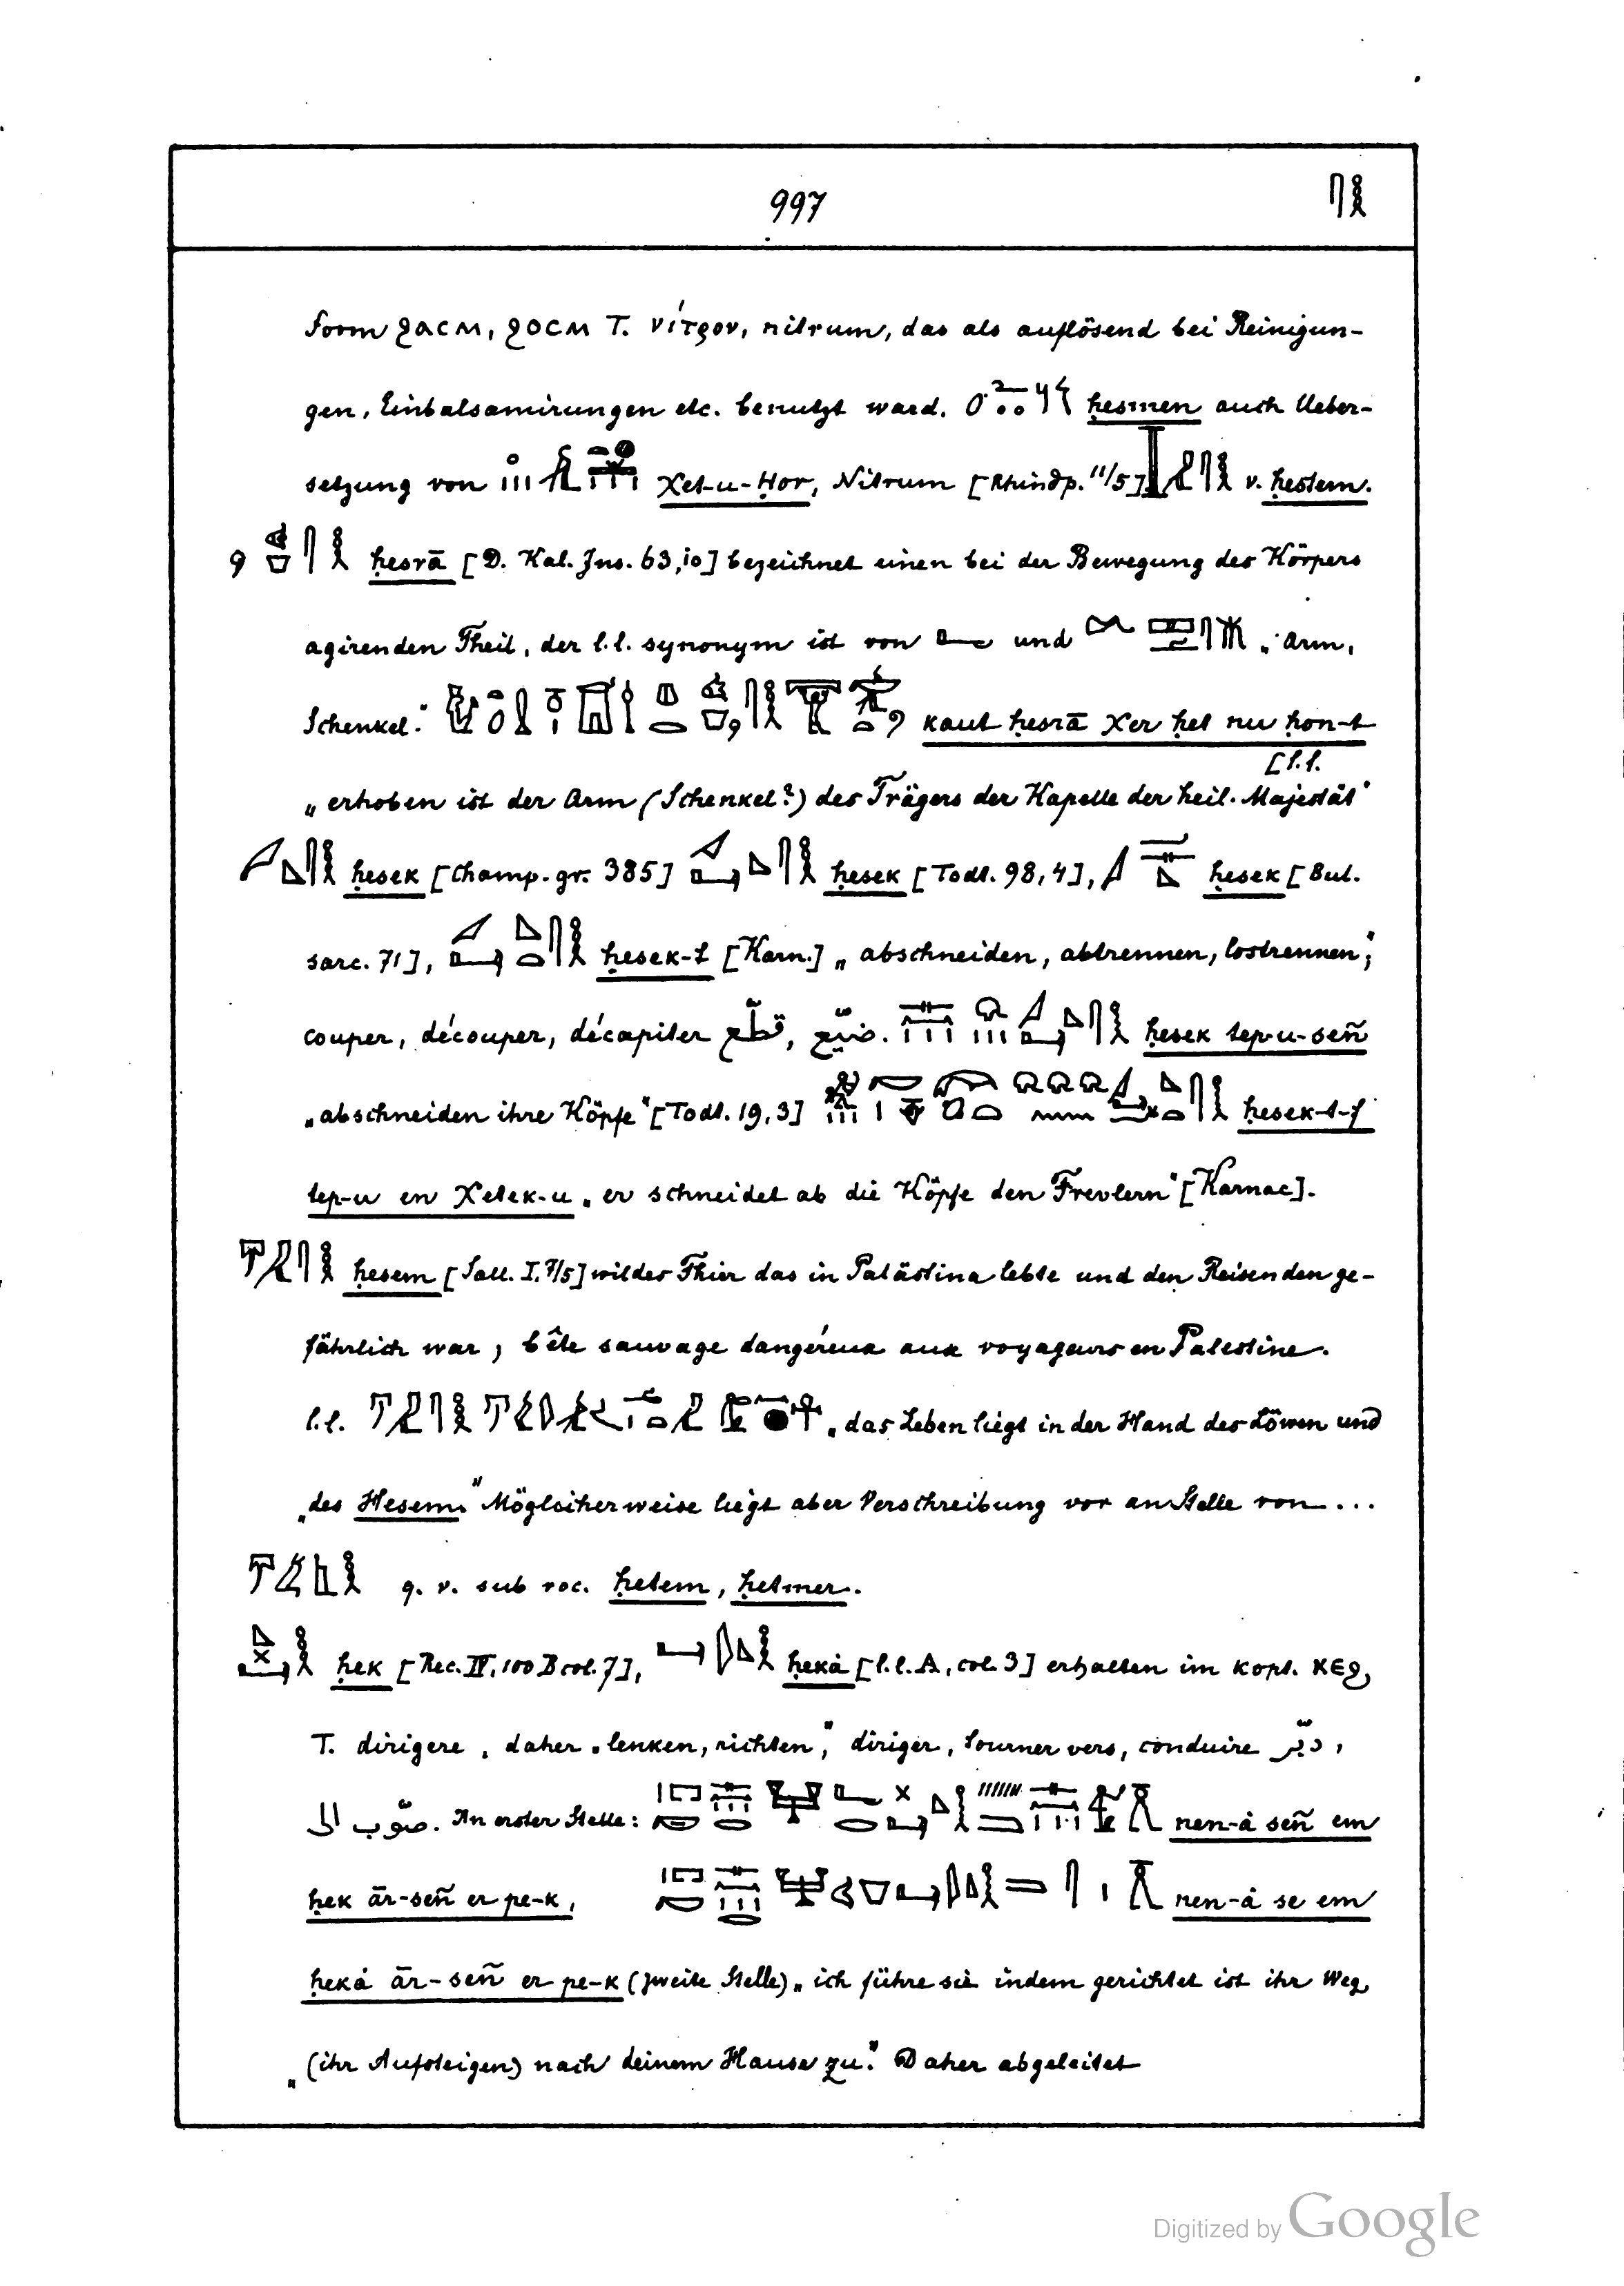 997
form ϩⲁⲥⲙ, ϩⲟⲥⲙ T. νίτρον, nitrum, das als auflösend bei Reinigun-
gen, Einbalsamirungen etc. benutzt ward. ḥesmen auch Ueber-
setzung von χet-u-Ḥor, Nitrum [Rhindp. 11/5] v. ḥestem.
ḥesrā [D. Kal. Ins. 63,10] bezeichnet einen bei der Bewegung des Körpers
agirenden Theil, der l.l. synonym ist von und „Arm,
Schenkel." kaut ḥesrā χer ḥet nu ḥon-t
[l.l.
„erhoben ist der Arm (Schenkel?) des Trägers der Kapelle der heil. Majestät"
ḥesek [Champ. gr. 385] ḥesek [Todt. 98,4], ḥesek [Bul.
sarc. 71], ḥesek-t [Karn.] „abschneiden, abtrennen, lostrennen,"
couper, découper, décapiter قطّع, ضيّع. ḥesek tep-u-señ
„abschneiden ihre Köpfe" [Todt. 19,3] ḥesek-t-f
tep-u en χetek-u „er schneidet ab die Köpfe den Frevlern" [Karnac].
ḥesem [Sall. I, 7/5] wildes Thier das in Palästina lebte und den Reisenden ge-
fährlich war, bête sauvage dangéreux aux voyageurs en Palestine.
l.l. „das Leben liegt in der Hand des Löwen und
„des Hesem." Möglicherweise liegt aber Verschreibung vor an Stelle von ...
q. v. sub voc. ḥetem, ḥetmer.
ḥek [Rec. IV, 100 B col. 7], ḥekȧ [l.l. A, col. 3] erhalten im kopt. ⲕⲉϩ,
T. dirigere, daher „lenken, richten," diriger, tourner vers, conduire دبّر,
صوّب الى. An erster Stelle: nen-ȧ señ em
ḥek ār-señ er pe-k, nen-ȧ se em
ḥekȧ ār-señ er pe-k (zweite Stelle) „ich führe sie indem gerichtet ist ihr Weg
„(ihr Aufsteigen) nach deinem Hause zu." Daher abgeleitet
Digitized by Google